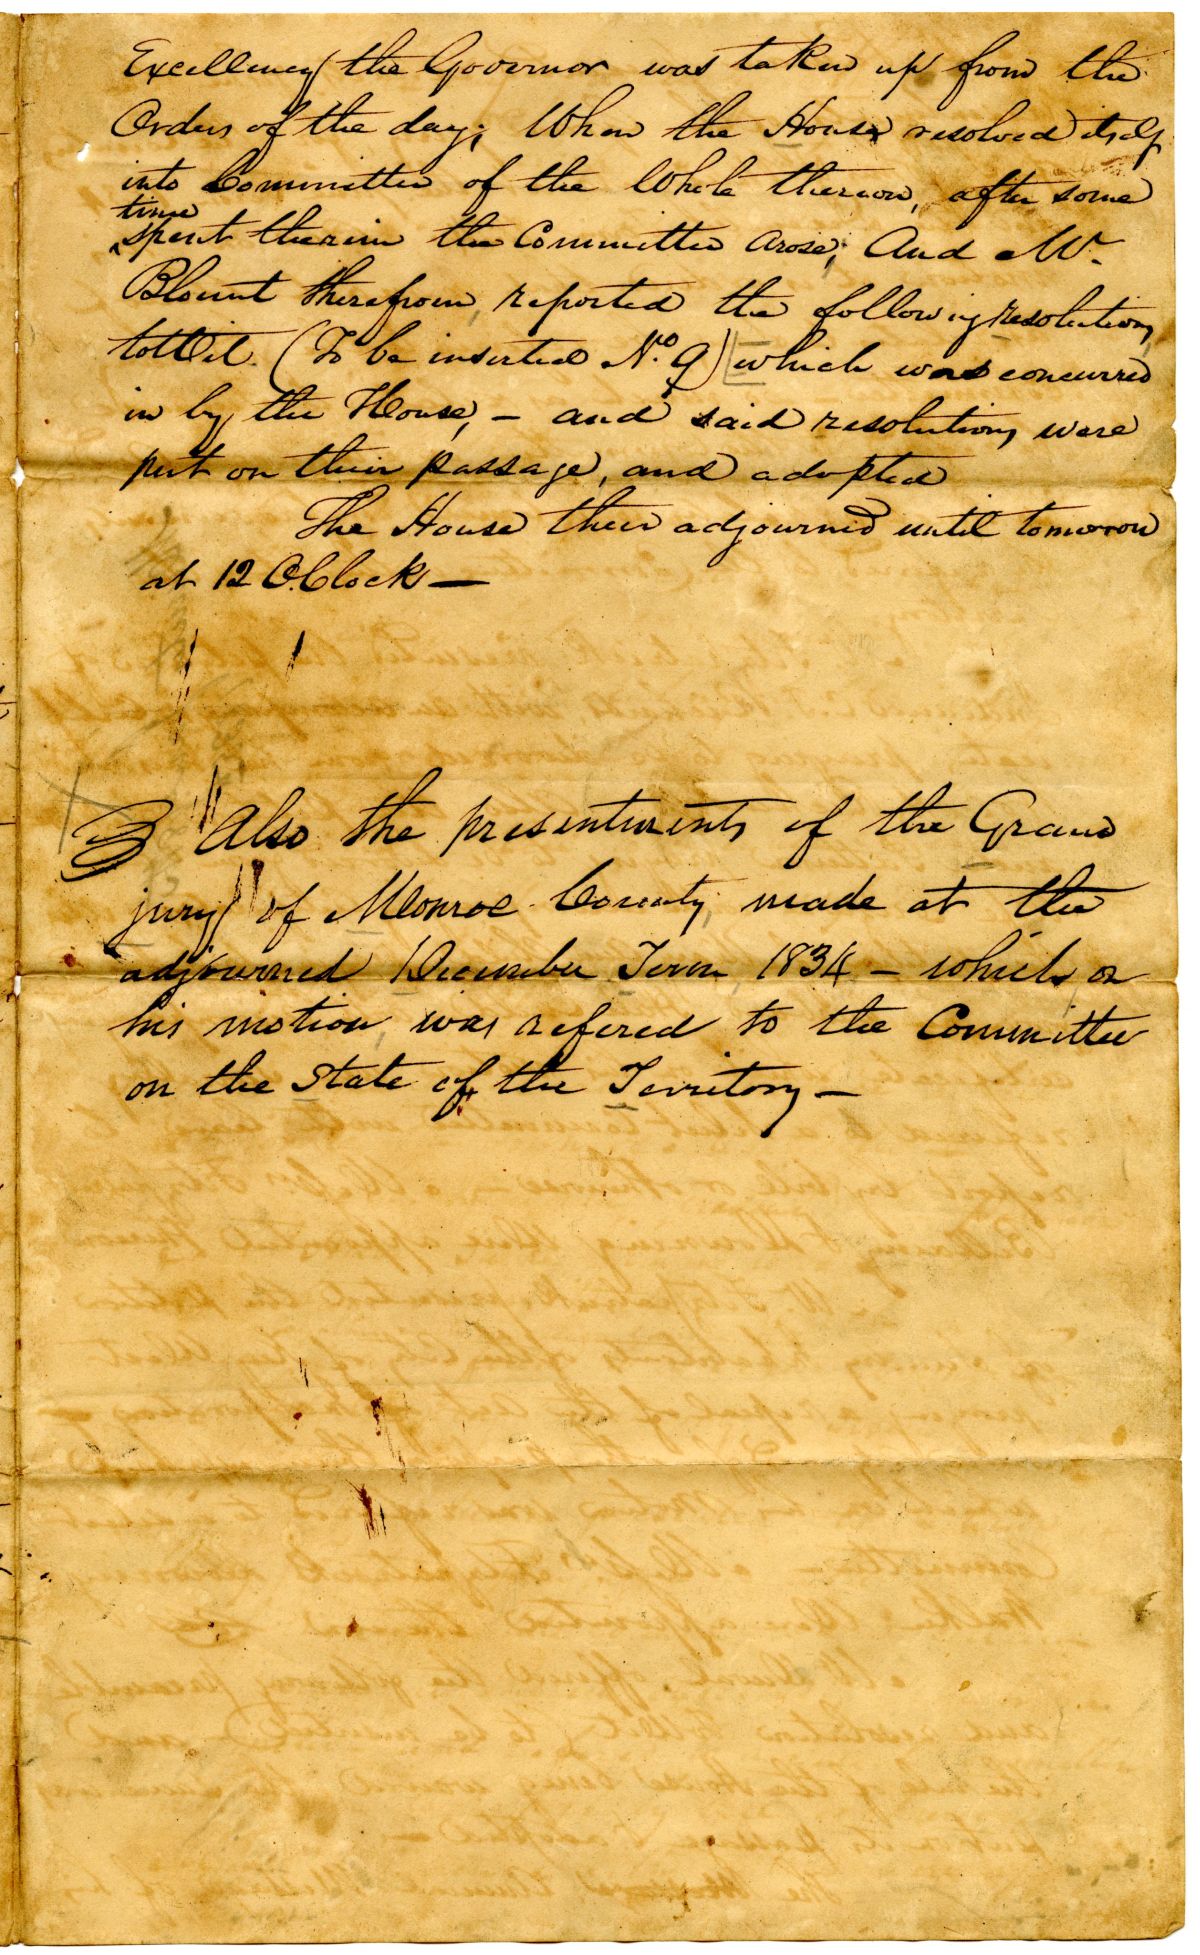 Excellency the Governor was taken up from the
Orders of the day, When the House resolved itself
into Committee of the Whole thereon, after some
time
spent therein the Committee arose; And Mr.
Blount therefrom reported the following resolutions,
towit (To be inserted No. 9) which was concurred
in by the House, – and said resolutions were
put on their passage, and adopted
The House then adjourned until tomorrow
at 12 O.Clock —
Also the presentments of the Grand
jury of Monroe County, made at the
adjourned December Term 1834 – which on
his motion was refered to the Committee
on the State of the Territory –